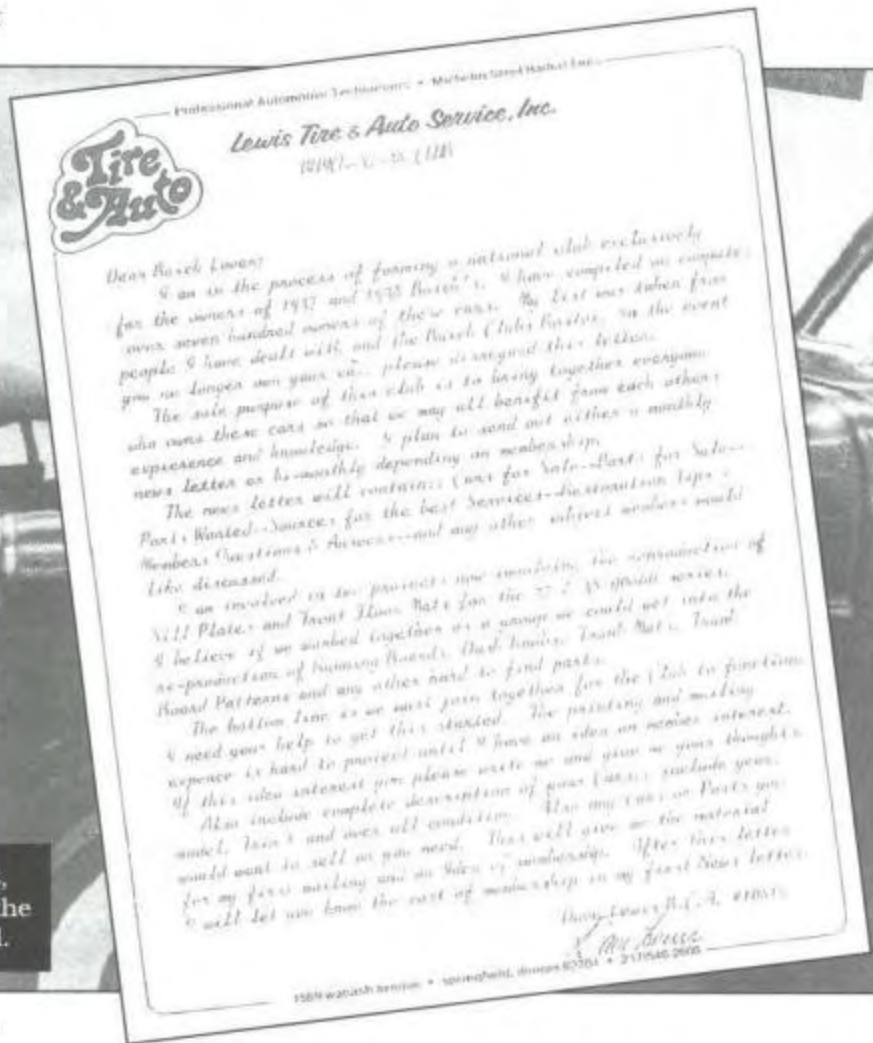 Professional Automotive Technicians • Michelin Steel Radial Tires
Tire
& Auto
Lewis Tire & Auto Service, Inc.
Dear Buick Lover:
I am in the process of forming a national club exclusively
for the owners of 1937 and 1938 Buick's. I have compiled on computer
over seven hundred owners of these cars. My list was taken from
people I have dealt with and the Buick Clubs Roster. In the event
you no longer own your car, please disregard this letter.
The sole purpose of this club is to bring together everyone
who owns these cars so that we may all benefit from each others
experience and knowledge. I plan to send out either a monthly
news letter or bi-monthly depending on membership.
The news letter will contain: Cars for Sale--Parts for Sale--
Parts Wanted--Sources for the best Services--Restoration tips
Members Questions & Answers--and any other subject members would
like discussed.
I am involved in two projects now involving the reproduction of
Sill Plates and Front Floor Mats for the 37 & 38 series.
I believe if we worked together as a group we could get into the
re-production of Running Boards, Dash Knobs, Trunk Mats, Trunk
Board Patterns and any other hard to find parts.
The bottom line is we must join together for the Club to function.
I need your help to get this started. The printing and mailing
expence is hard to project until I have an idea on member interest.
If this idea interest you please write me and give me your thoughts.
Also include complete description of your Cars, include year,
model, Trim's and over all condition. Also any Cars or Parts you
would want to sell or you need. This will give me the material
for my first mailing and an idea of membership. After this letter
I will let you know the cost of membership in my first News letter.
Dave Lewis B.C.A.
Dave Lewis
1569 wabash avenue • springfield, illinois 62704 • 217/546-2666
the